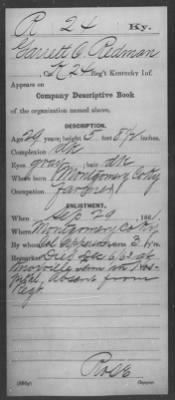 R 24 Ky.
Garrett C. Redman
Co. K, 24 Reg't Kentucky Inf.
Appears on
Company Descriptive Book
of the organization named above.
DESCRIPTION.
Age 29 years; height 5 feet 8½ inches.
Complexion dk
Eyes gray; hair dk
Where born Montgomery Co Ky
Occupation farmer
ENLISTMENT.
When Sep 29, 1861.
Where Montgomery Co Ky
By whom term 3 y'rs.
Remarks: Died
Knoxville Tenn in Hos-
pital, absent from
Regt
Copyist.